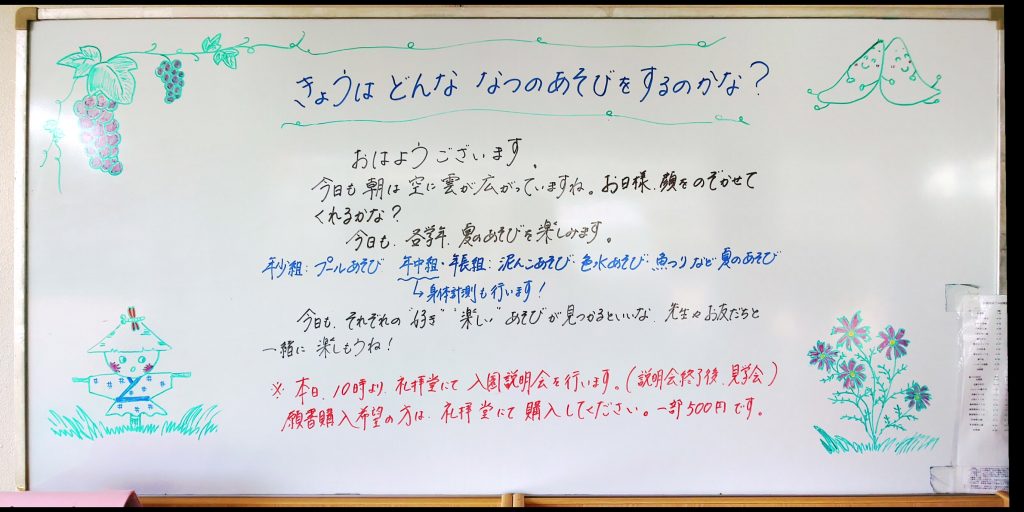 きょうは どんな なつのあそびをするのかな?
おはようございます。
今日も朝は空に雲が広がっていますね。お日様、顔をのぞかせて
くれるかな?
今日も、各学年、夏のあそびを楽しみます。
年少組:プールあそび 年中組・年長組:泥んこあそび・色水あそび・魚つりなど夏のあそび
↳身体計測も行います!
今日も、それぞれの"好き""楽しい"あそびが見つかるといいな、先生やお友だちと
一緒に楽しもうね!
※本日、10時より、礼拝堂にて入園説明会を行います。(説明会終了後、見学会)
願書購入希望の方は、礼拝堂にて購入してください。一部500円です。